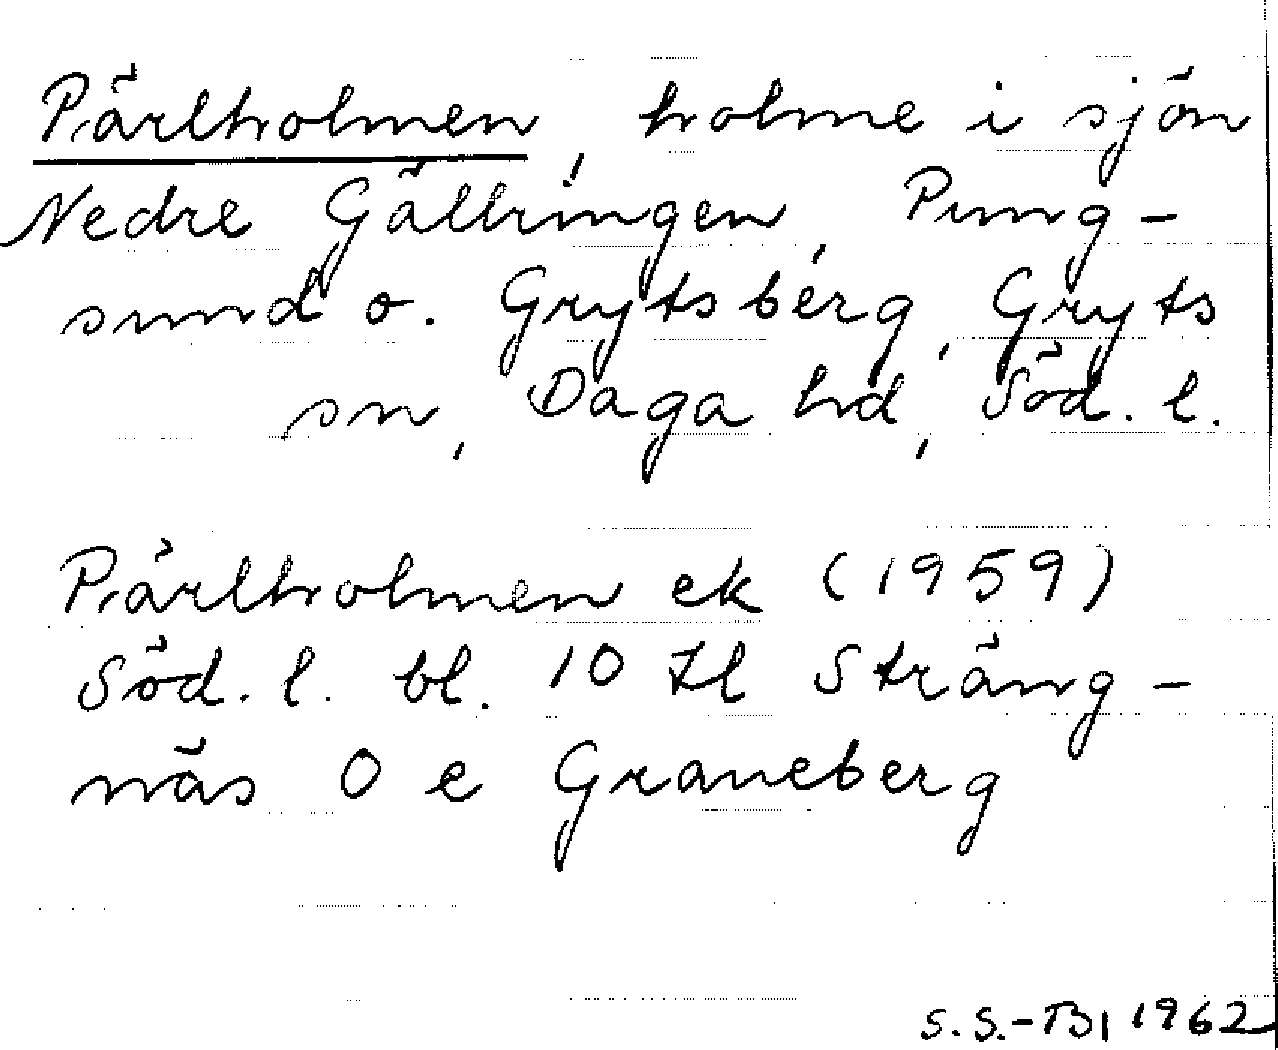 Pärlholmen, holme i sjön
Nedre Gällringen, Pung-
sund o. Grytsberg, Gryts
sn, Daga hd, Söd. l.
Pärlholmen ek (1959)
Söd. l. bl. 10 Il Sträng-
näs O e Graneberg
S.S.-Bl 1962